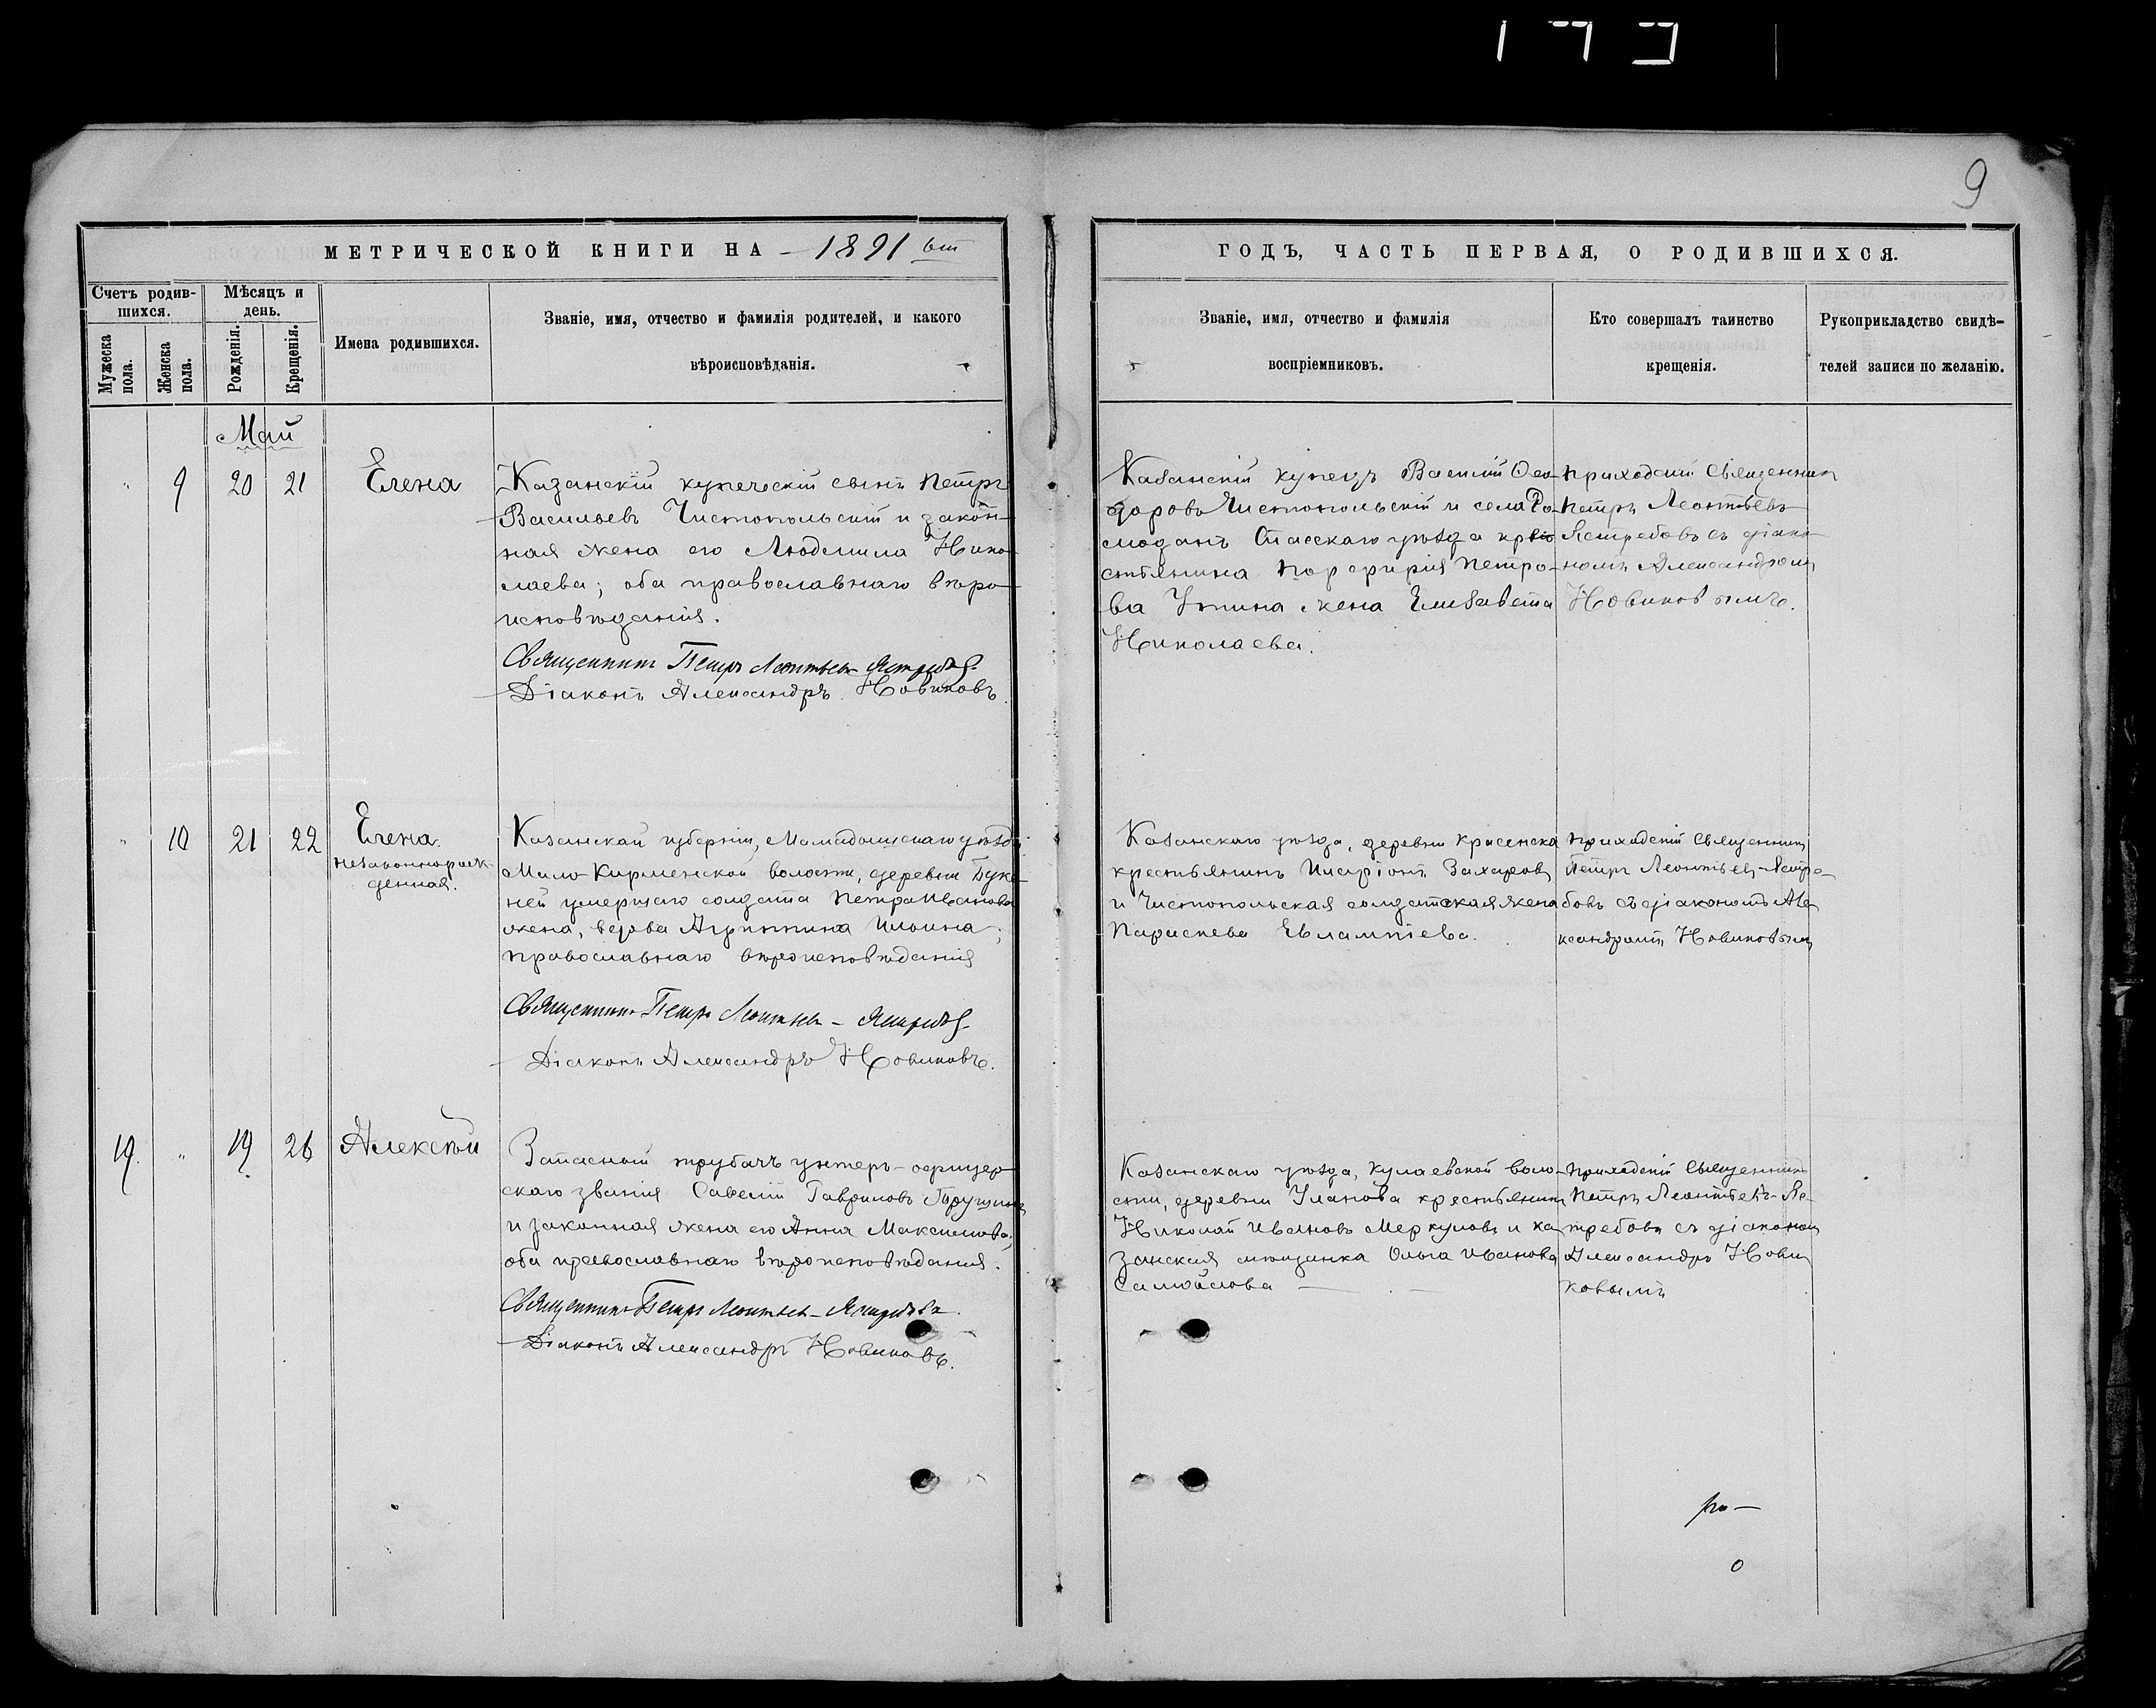 9
МЕТРИЧЕСКОЙ КНИГИ НА 1891 ый
ГОДЪ, ЧАСТЬ ПЕРВАЯ, О РОДИВШИХСЯ.
Счетъ родив-
шихся.
Мужеска пола.
Женска пола.
Мѣсяцъ и
день.
Рожденія.
Крещенія.
Имена родившихся.
Званіе, имя, отчество и фамилія родителей, и какого
вѣроисповѣданія.
Званіе, имя, отчество и фамилія
воспріемниковъ.
Кто совершалъ таинство
крещенія.
Рукоприкладство свидѣ-
телей записи по желанію.
Май
" 9 20 21 Елена
Казанскій купеческій сынъ Петръ
Васильевъ Чистопольскій и закон-
ная жена его Людмила Нико-
лаева; оба православнаго вѣро-
исповѣданія.
Священникъ Петръ Леонтьевъ-Ястребовъ
Діаконъ Александръ Новиковъ.
Казанскій купецъ Василій Ѳео-
доровъ Чистопольскій и села
Спасскаго уѣзда кре-
стьянина Порфирія Петро-
ва жена Елизавета
Николаева.
Приходскій Священникъ
Петръ Леонтьевъ
Ястребовъ съ діако-
номъ Александромъ
Новиковымъ.
" 10 21 22 Елена
незаконнорож-
денная.
Казанской губерніи, Мамадышскаго уѣзда
Мало-Кирменской волости, деревни
умершаго солдата Петра Иванова
жена, вдова Агриппина Ильина;
православнаго вѣроисповѣданія
Священникъ Петръ Леонтьевъ-Ястребовъ
Діаконъ Александръ Новиковъ.
Казанскаго уѣзда, деревни
крестьянинъ Иларіонъ Захаровъ
и Чистопольская солдатская жена
Параскева Евлампіева.
Приходскій Священникъ
Петръ Леонтьевъ-Ястре-
бовъ съ діакономъ Але-
ксандромъ Новиковымъ
19 " 19 26 Алексѣй
Запасный трубачъ унтеръ-офицер-
скаго званія Савелій Гавриловъ
и законная жена его Анна Максимова;
оба православнаго вѣроисповѣданія.
Священникъ Петръ Леонтьевъ-Ястребовъ.
Діаконъ Александръ Новиковъ.
Казанскаго уѣзда, Кулаевской воло-
сти, деревни Уланова крестьянинъ
Николай Ивановъ Меркуловъ и Ка-
занская мѣщанка Ольга Иванова
Самойлова
Приходскій Священникъ
Петръ Леонтьевъ-Яс-
требовъ съ діакономъ
Александръ Нови-
ковымъ